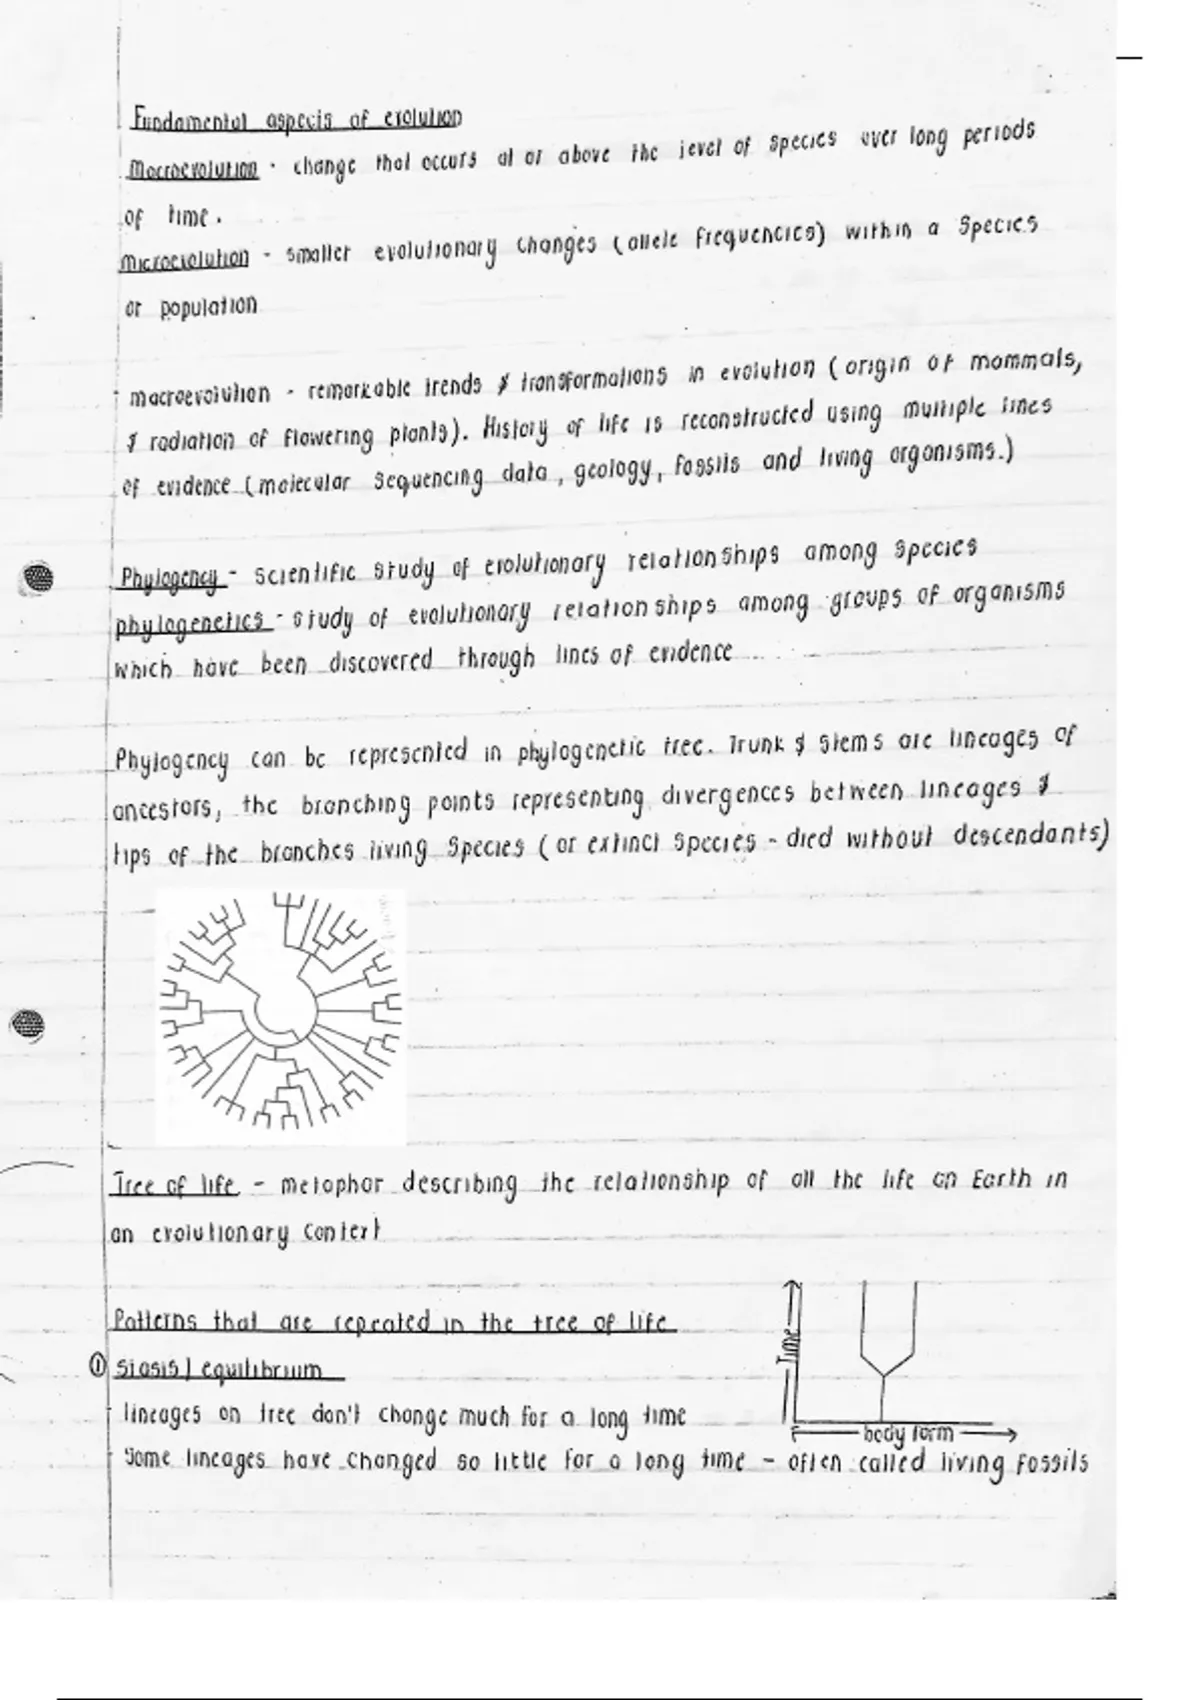 Fundamental aspects of evolution
Macroevolution - change that occurs at or above the level of species over long periods
of time.
Microevolution - smaller evolutionary changes (allele frequencies) within a species
or population
macroevolution - remarkable trends & transformations in evolution (origin of mammals,
& radiation of flowering plants). History of life is reconstructed using multiple lines
of evidence (molecular sequencing data, geology, fossils and living organisms.)
Phylogency - scientific study of evolutionary relationships among species
phylogenetics - study of evolutionary relationships among groups of organisms
which have been discovered through lines of evidence
Phylogency can be represented in phylogenetic tree. Trunk & stems are lineages of
ancestors, the branching points representing divergences between lineages &
tips of the branches living species (or extinct species - died without descendants)
Tree of life - metaphor describing the relationship of all the life on Earth in
an evolutionary context
Patterns that are repeated in the tree of life
① stasis / equilibrium
Time
lineages on tree don't change much for a long time
body form
Some lineages have changed so little for a long time - often called living fossils